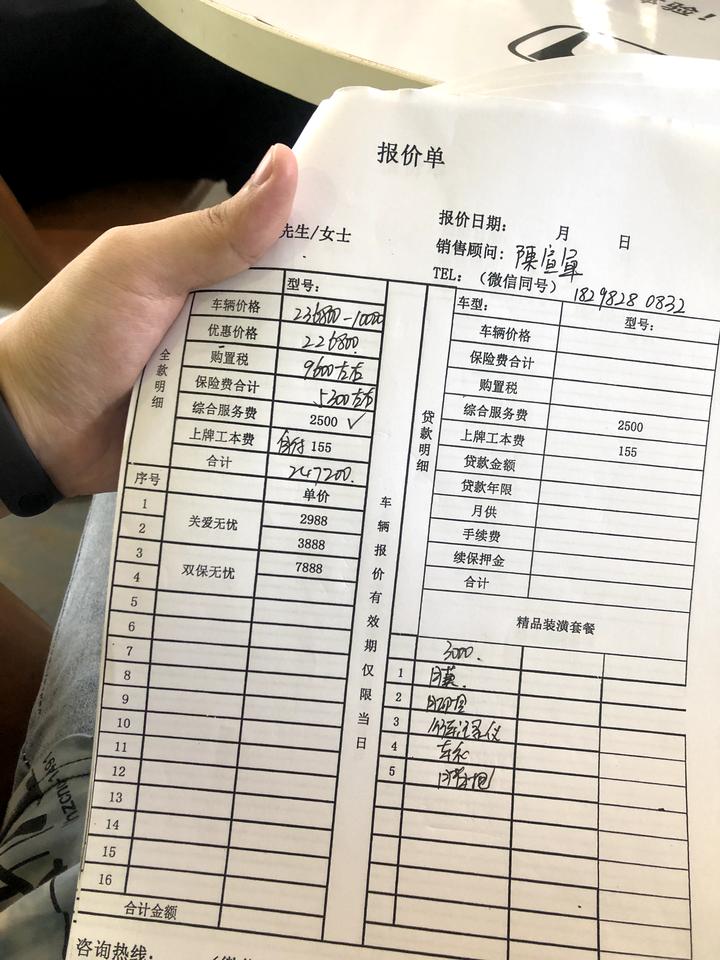 报价单
报价日期： 月 日
先生/女士
销售顾问：陈宣军
TEL：（微信同号） 182 9828 0832
全款明细
型号：
车辆价格 236800-10000
优惠价格 226800
购置税 9600左右
保险费合计 5300左右
综合服务费 2500 ✓
上牌工本费 自付 155
合计 247200.
序号 单价
1 关爱无忧 2988
2 3888
3 双保无忧 7888
4
5
6
7
8
9
10
11
12
13
14
15
16
合计金额
车辆报价有效期仅限当日
贷款明细
车型： 型号：
车辆价格
保险费合计
购置税
综合服务费 2500
上牌工本费 155
贷款金额
贷款年限
月供
手续费
续保押金
合计
精品装潢套餐
3000.
1
2
3 行车记录仪
4 车衣
5
咨询热线：